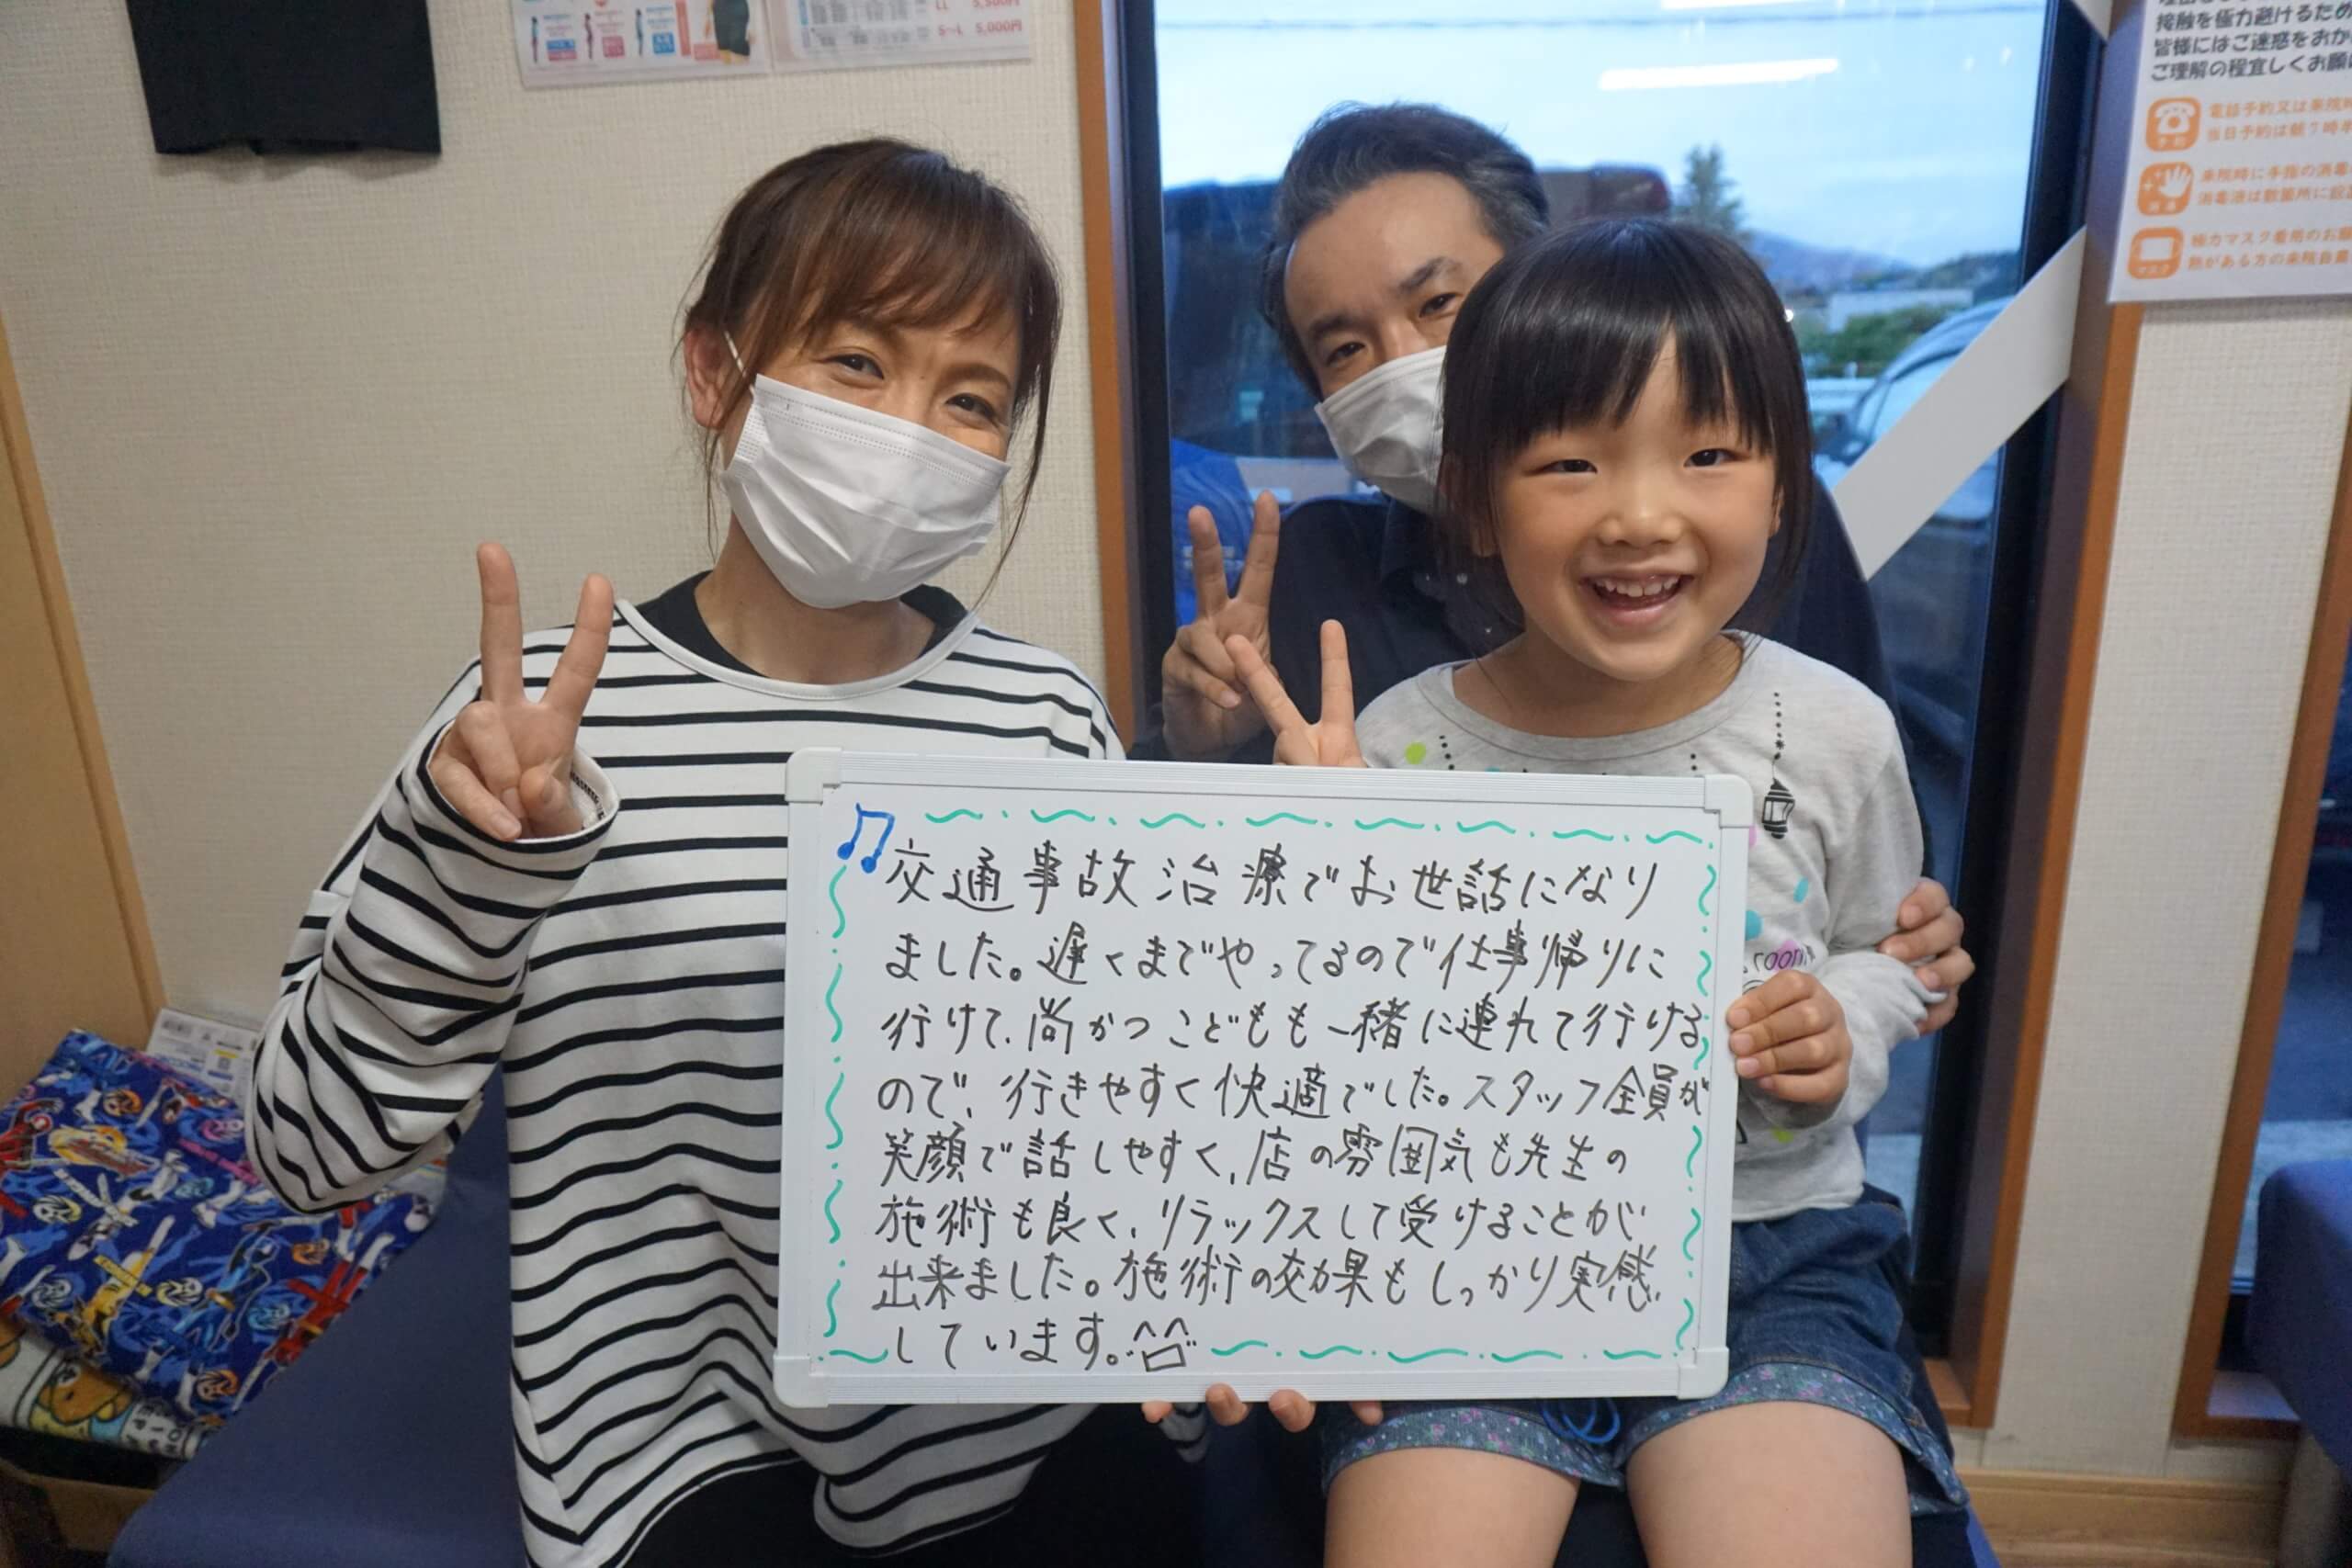 LL 5,500円
S~L 5,000円
接触を極力避けるため
皆様にはご迷惑をおか
ご理解の程宜しくお願
電話予約又は来院時
当日予約は朝7時半
来院時に手指の消毒
消毒液は数箇所に設
極力マスク着用のお願
マスク
熱がある方の来院自粛
交通事故治療でお世話になり
ました。遅くまでやってるので仕事帰りに
行けて、尚かつこどもも一緒に連れて行ける
ので、行きやすく快適でした。スタッフ全員が
笑顔で話しやすく、店の雰囲気も先生の
施術も良く、リラックスして受けることが
出来ました。施術の効果もしっかり実感
しています。^^